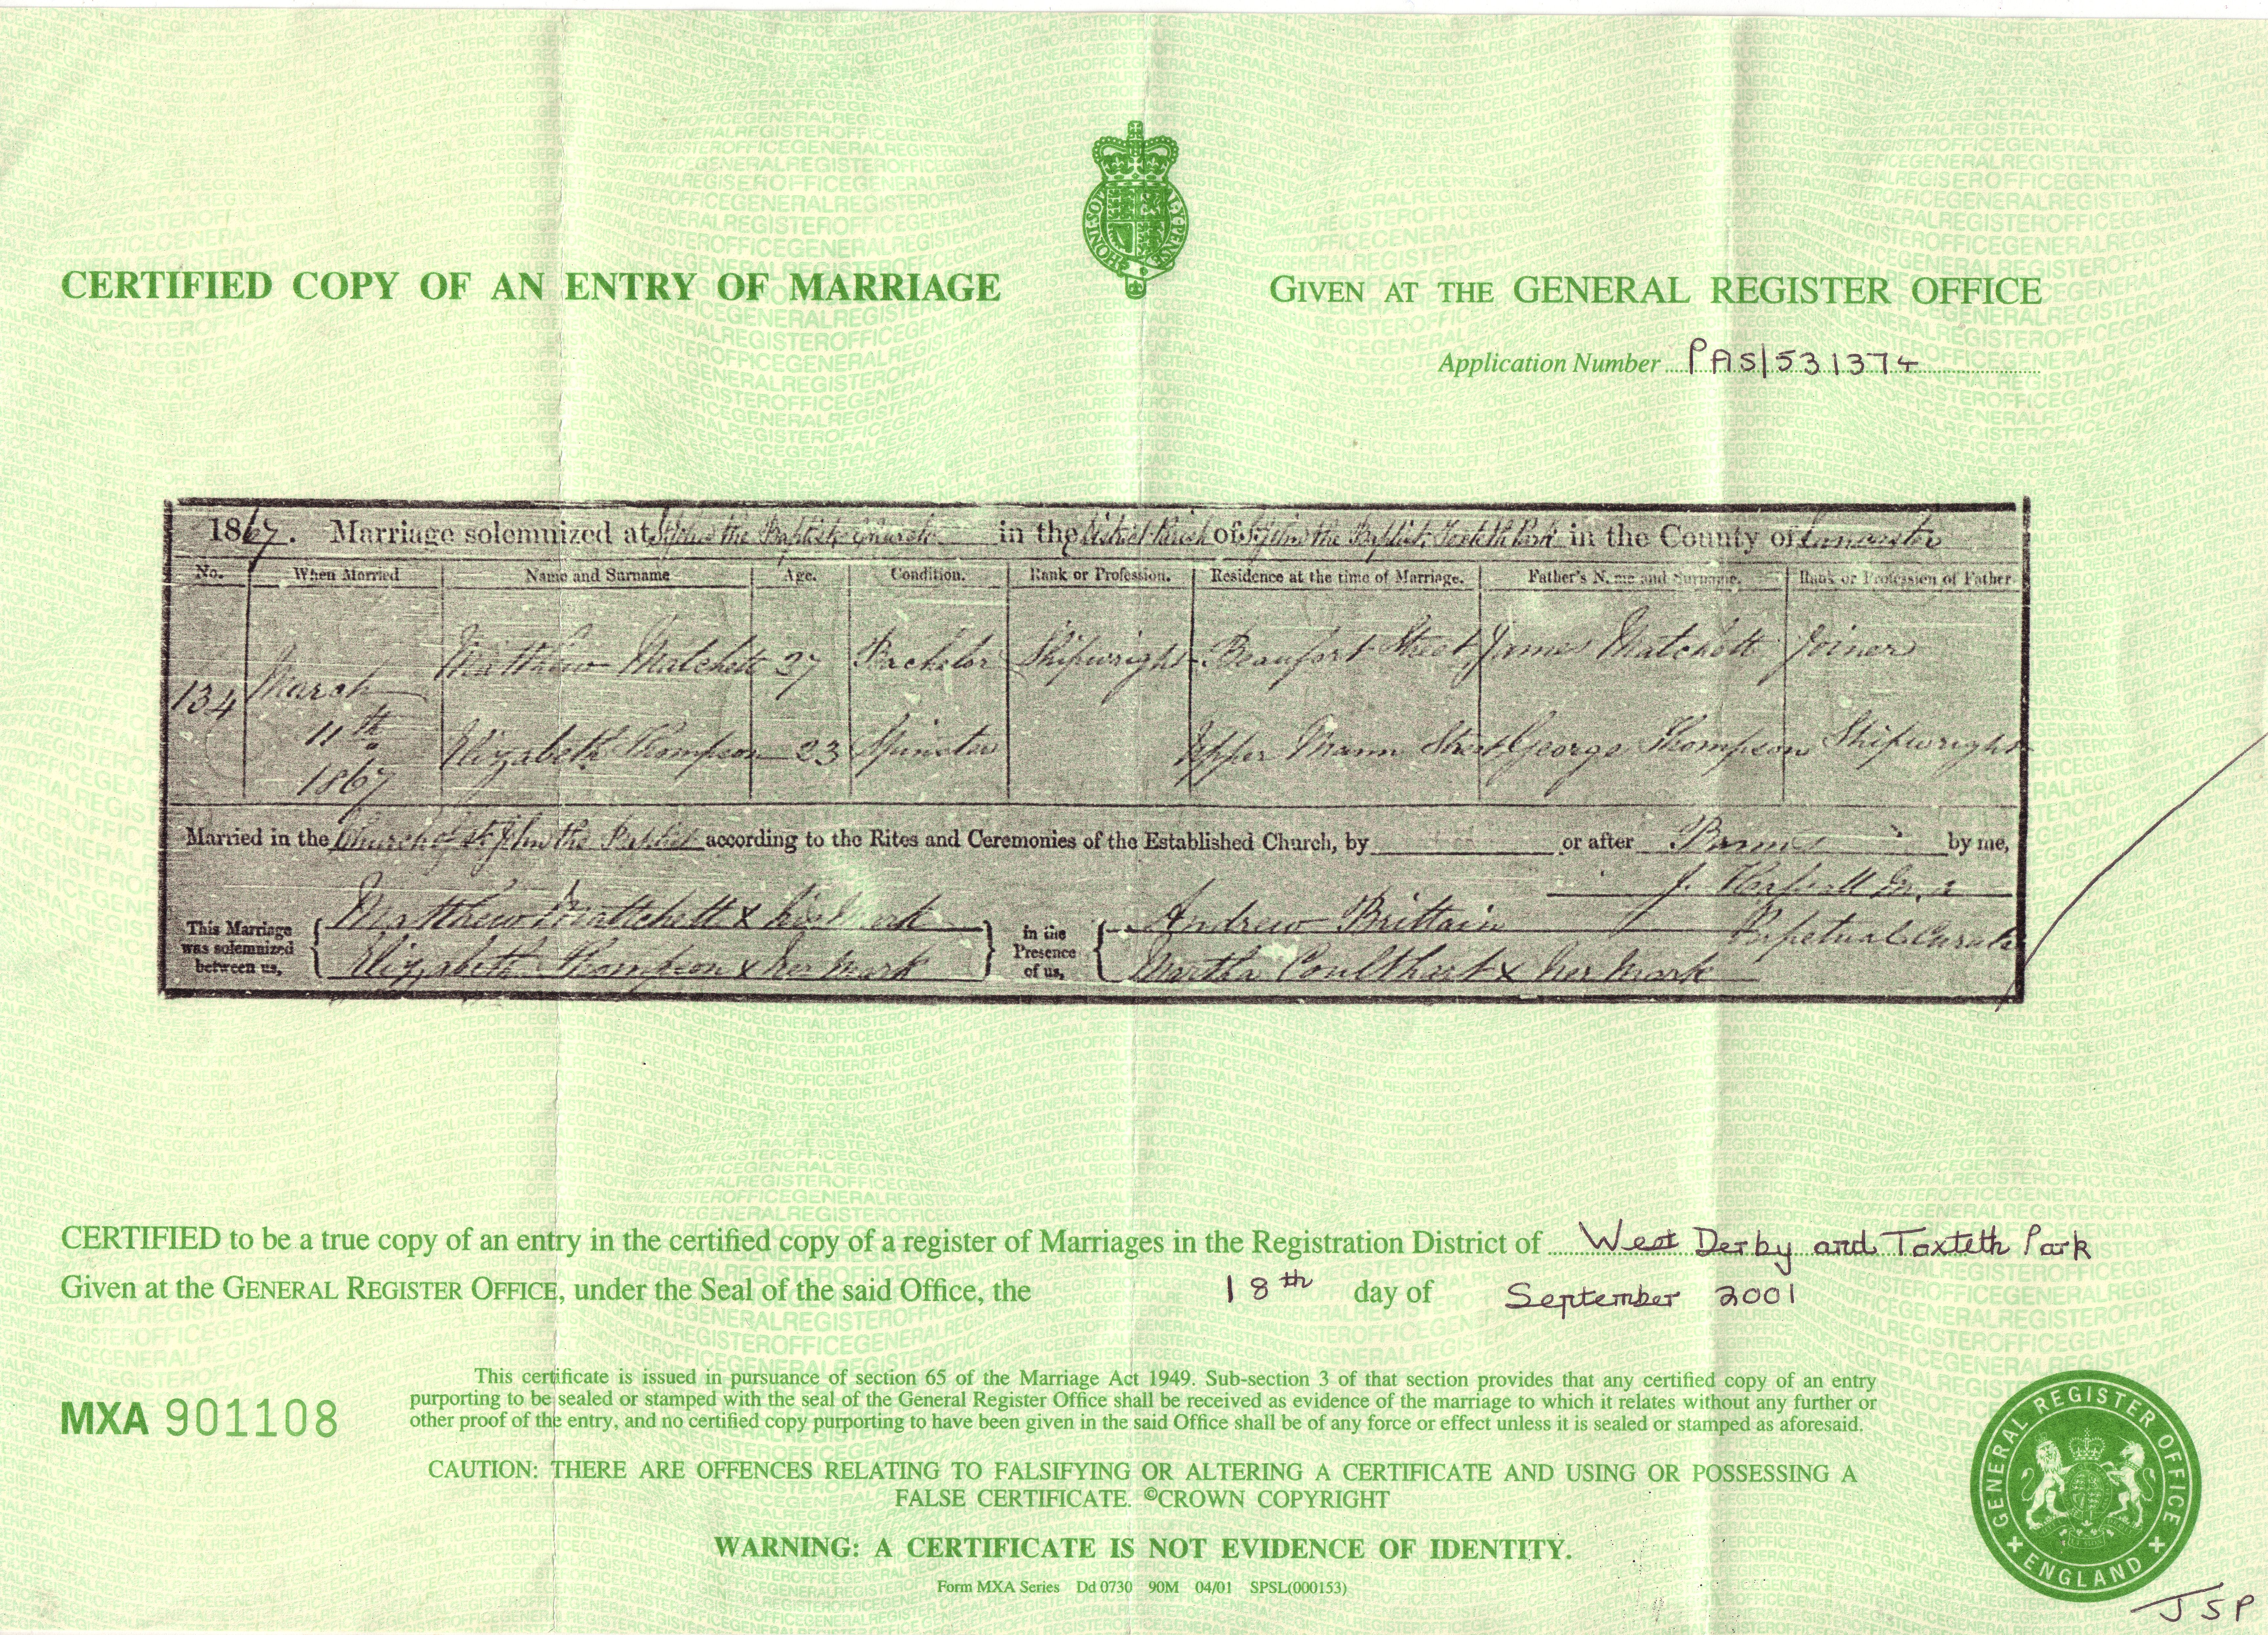 HONI·SOI
AL·Y·PENSE
CERTIFIED COPY OF AN ENTRY OF MARRIAGE
GIVEN AT THE GENERAL REGISTER OFFICE
Application Number PAS|531374
1867. Marriage solemnized at St John the Baptist Church in the District Parish of St John the Baptist Toxteth Park in the County of Lancaster
No. When Married Name and Surname Age. Condition. Rank or Profession. Residence at the time of Marriage. Father's Name and Surname. Rank or Profession of Father
134 March 11th 1867
Matthew Matchett 27 Bachelor Shipwright Beaufort Street James Matchett Joiner
Elizabeth Thompson 23 Spinster Upper Mann Street George Thompson Shipwright
Married in the Church of St John the Baptist according to the Rites and Ceremonies of the Established Church, by or after Banns by me,
J.
This Marriage was solemnized between us, Matthew Mattchett x his Mark In the Presence of us, Andrew Brittain Perpetual Curate
Elizabeth Thompson x her Mark Martha Coulthart x her Mark
CERTIFIED to be a true copy of an entry in the certified copy of a register of Marriages in the Registration District of West Derby and Toxteth Park
Given at the GENERAL REGISTER OFFICE, under the Seal of the said Office, the 18th day of September 2001
This certificate is issued in pursuance of section 65 of the Marriage Act 1949. Sub-section 3 of that section provides that any certified copy of an entry
purporting to be sealed or stamped with the seal of the General Register Office shall be received as evidence of the marriage to which it relates without any further or
other proof of the entry, and no certified copy purporting to have been given in the said Office shall be of any force or effect unless it is sealed or stamped as aforesaid.
MXA 901108
CAUTION: THERE ARE OFFENCES RELATING TO FALSIFYING OR ALTERING A CERTIFICATE AND USING OR POSSESSING A
FALSE CERTIFICATE. ©CROWN COPYRIGHT
WARNING: A CERTIFICATE IS NOT EVIDENCE OF IDENTITY.
Form MXA Series Dd 0730 90M 04/01 SPSL(000153)
GENERAL REGISTER OFFICE
ENGLAND
JSP